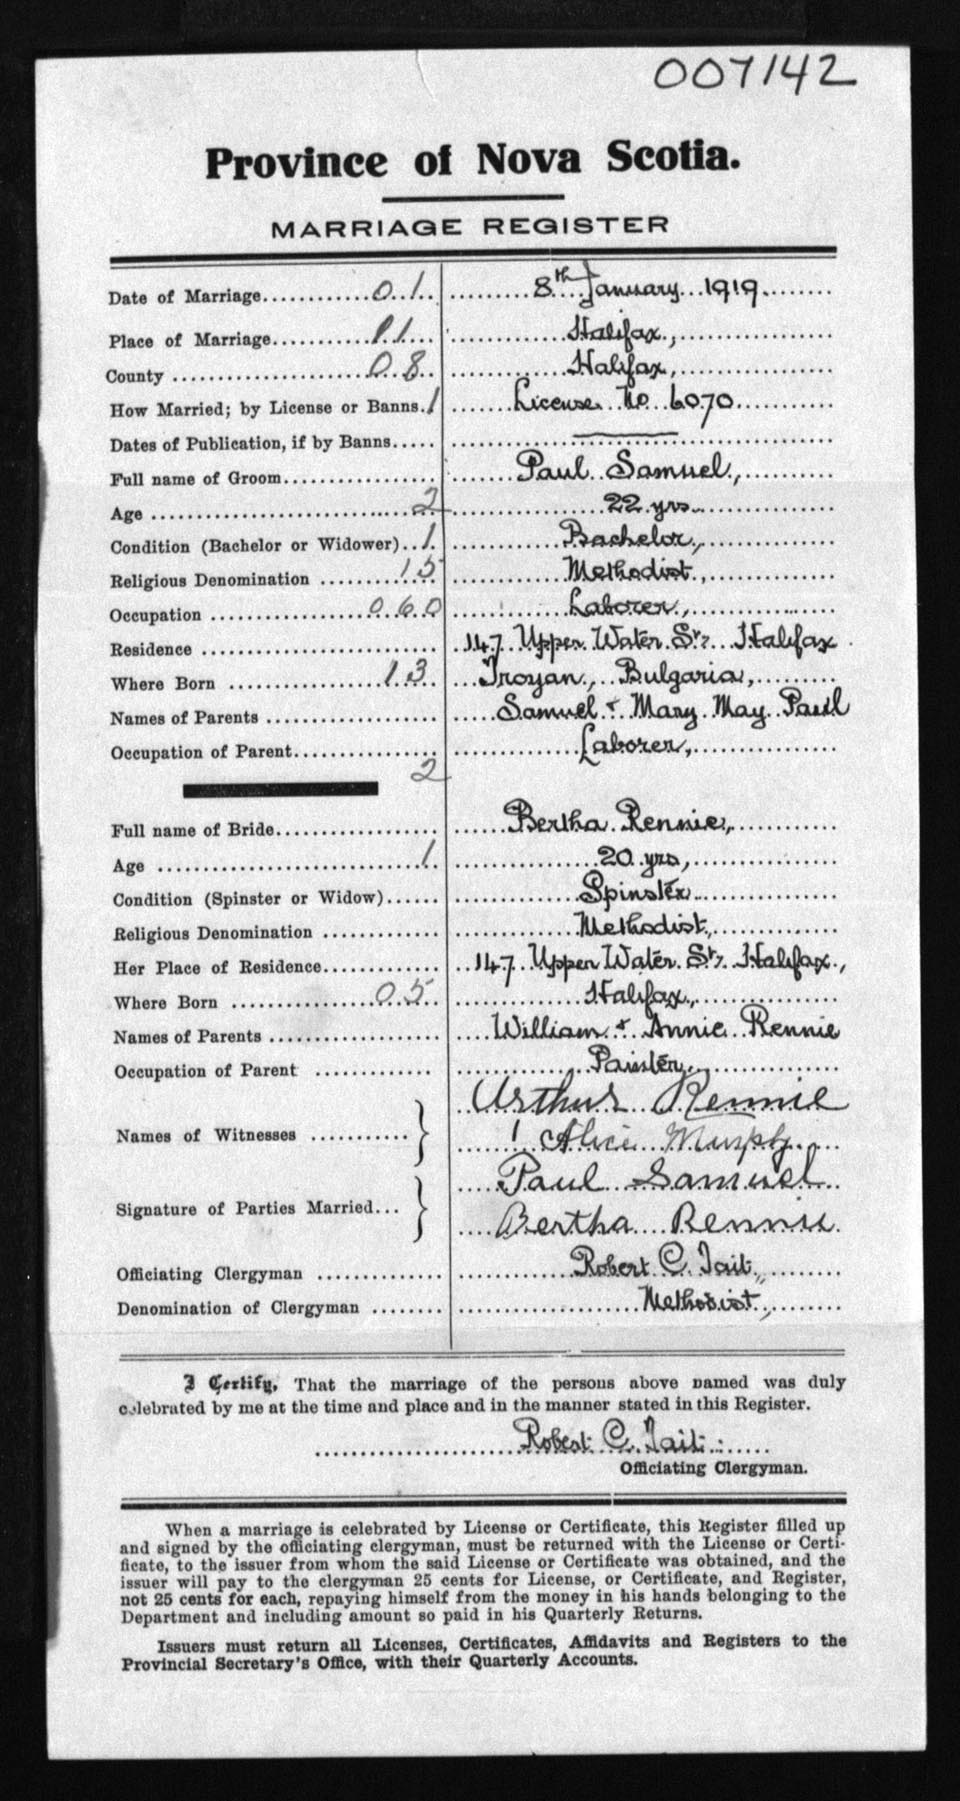 007142
Province of Nova Scotia.
MARRIAGE REGISTER
Date of Marriage............0.1.. .........8th January 1919........
Place of Marriage............11... Halifax,
County ....................08.. Halifax,
How Married; by License or Banns.1 License No 6070
Dates of Publication, if by Banns.....
Full name of Groom................ Paul Samuel,
Age ......................2 22 yrs.
Condition (Bachelor or Widower)..1. Bachelor,
Religious Denomination ........15 Methodist,
Occupation ................060 Laborer,
Residence ......................... 147 Upper Water St, Halifax
Where Born ................13.. Troyan, Bulgaria,
Names of Parents .................. Samuel & Mary May Paul
Occupation of Parent............... Laborer,
2
Full name of Bride................. Bertha Rennie,
Age ...........................1 20 yrs,
Condition (Spinster or Widow)...... Spinster
Religious Denomination ............ Methodist,
Her Place of Residence............. 147 Upper Water St, Halifax,
Where Born ...............05.. Halifax,
Names of Parents .................. William & Annie Rennie
Occupation of Parent ............. Painter,
Arthur Rennie
Names of Witnesses ........... } Alice Murphy
Paul Samuel
Signature of Parties Married... } Bertha Rennie
Officiating Clergyman .............. Robert C. Tait,
Denomination of Clergyman ........ Methodist,
I Certify, That the marriage of the persons above named was duly
celebrated by me at the time and place and in the manner stated in this Register.
Robert C. Tait
Officiating Clergyman.
When a marriage is celebrated by License or Certificate, this Register filled up
and signed by the officiating clergyman, must be returned with the License or Certi-
ficate, to the issuer from whom the said License or Certificate was obtained, and the
issuer will pay to the clergyman 25 cents for License, or Certificate, and Register,
not 25 cents for each, repaying himself from the money in his hands belonging to the
Department and including amount so paid in his Quarterly Returns.
Issuers must return all Licenses, Certificates, Affidavits and Registers to the
Provincial Secretary's Office, with their Quarterly Accounts.